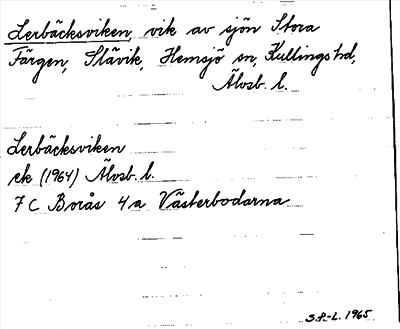 Lerbäcksviken, vik av sjön Stora
Färgen, Slävik, Hemsjö sn, Kullings hd,
Älvsb. l.
Lerbäcksviken
ek (1964) Älvsb. l.
7 C Borås 4 a Västerbodarna
S.P-L. 1965